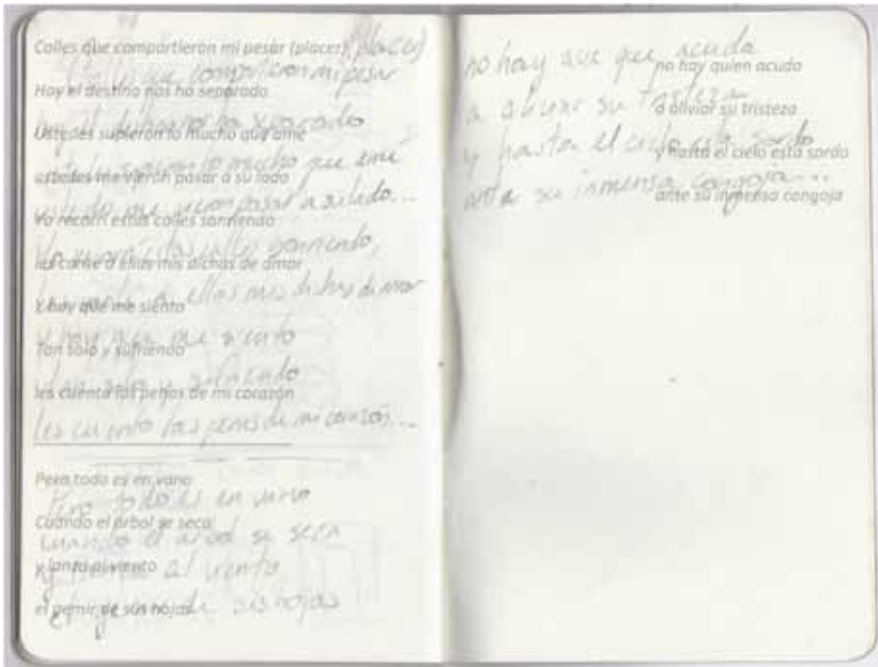 Calles que compartieron mi pesar (placer)
Calles que compartieron mi pesar (placer)
Hoy el destino nos ha separado
Hoy el destino nos ha separado
Ustedes supieron lo mucho que amé
lo mucho que amé
ustedes me vieron pasar a su lado
ustedes me vieron pasar a su lado...
Yo recorrí estas calles sonriendo
Yo recorrí estas calles sonriendo,
les conté a ellas mis dichas de amor
a ellas mis dichas de amor
Y hoy que me siento
Y hoy que me siento
Tan solo y sufriendo
tan solo y sufriendo
les cuento las penas de mi corazón
les cuento las penas de mi corazón...
Pero todo es en vano
Pero todo es en vano
Cuando el árbol se seca
cuando el árbol se seca
y lanza al viento
y lanza al viento
el gemir de sus hojas
el gemir de sus hojas
no hay quien acuda
no hay que acuda
a aliviar su tristeza
a aliviar su tristeza
y hasta el cielo está sordo
y hasta el cielo está sordo
ante su inmensa congoja
ante su inmensa congoja...